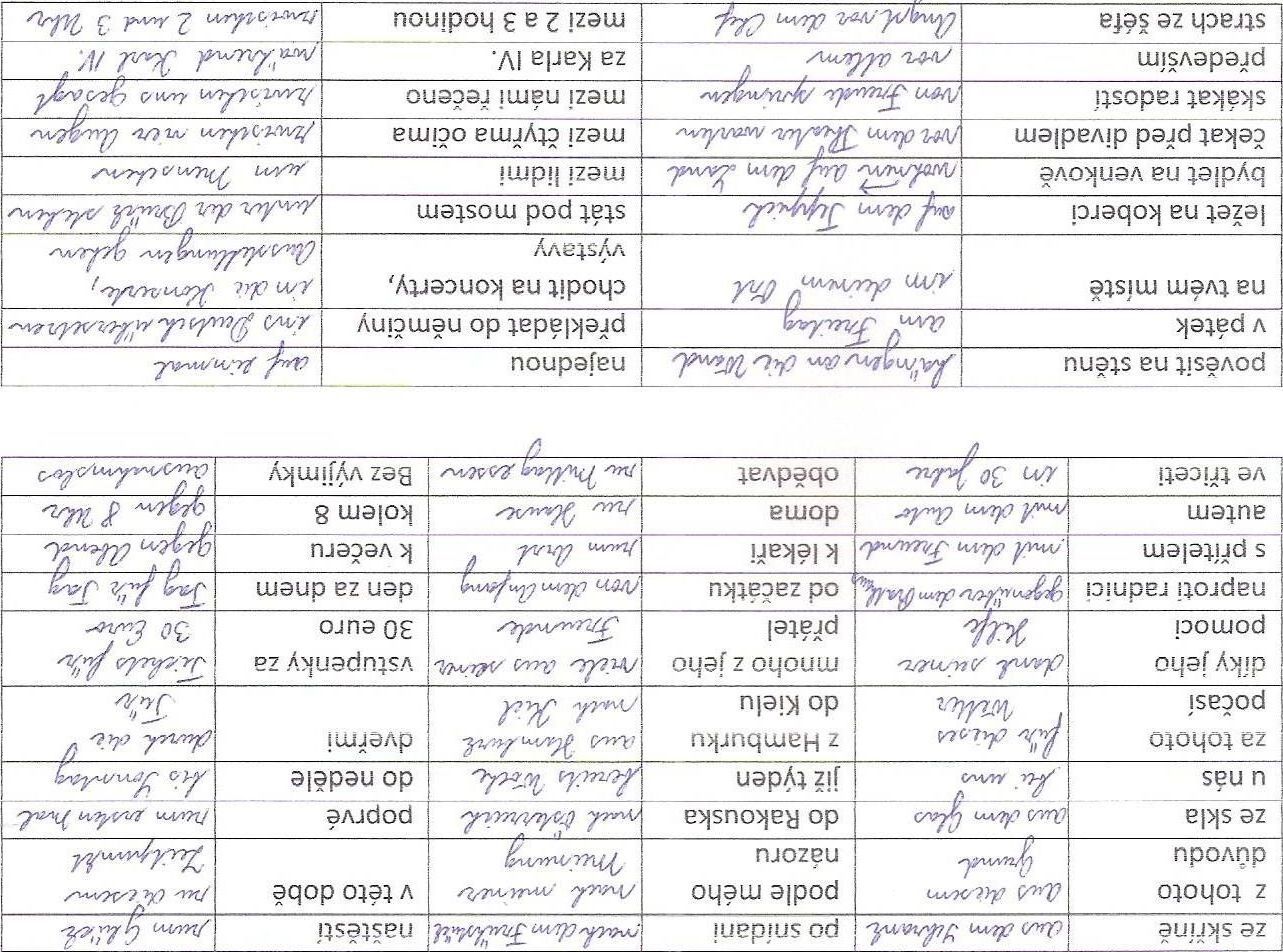 ze skříně aus dem Schrank po snídani nach dem Frühstück naštěstí zum Glück
z tohoto aus diesem podle mého nach meiner v této době zu diesem
důvodu Grund názoru Meinung Zeitpunkt
ze skla aus dem Glas do Rakouska nach Österreich poprvé zum ersten Mal
u nás bei uns již týden bereits Woche do neděle bis Sonntag
za tohoto für dieses z Hamburku aus Hamburk dveřmi durch die
počasí Wetter do Kielu nach Kiel Tür
díky jeho dank seiner mnoho z jeho viele aus seiner vstupenky za Tickets für
pomoci Hilfe přátel Freunde 30 euro 30 Euro
naproti radnici gegenüber dem Rathaus od začátku von dem Anfang den za dnem Tag für Tag
s přítelem mit dem Freund k lékaři zum Arzt k večeru gegen Abend
autem mit dem Auto doma zu Hause kolem 8 gegen 8 Uhr
ve třiceti in 30 Jahre obědvat zu Mittag essen Bez výjimky ausnahmslos
pověsit na stěnu hängen an die Wand najednou auf einmal
v pátek am Freitag překládat do němčiny ins Deutsch übersetzen
na tvém místě im deinem Ort chodit na koncerty, in die Konzerte,
výstavy Ausstellungen gehen
ležet na koberci auf dem Teppich stát pod mostem unter der Brück stehen
bydlet na venkově wohnen auf dem Land mezi lidmi um Menschen
čekat před divadlem vor dem Theater warten mezi čtyřma očima zwischen vier Augen
skákat radostí von Freude springen mezi námi řečeno zwischen uns gesagt
především vor allem za Karla IV. während Karl IV.
strach ze šéfa Angst vor dem Chef mezi 2 a 3 hodinou zwischen 2 und 3 Uhr